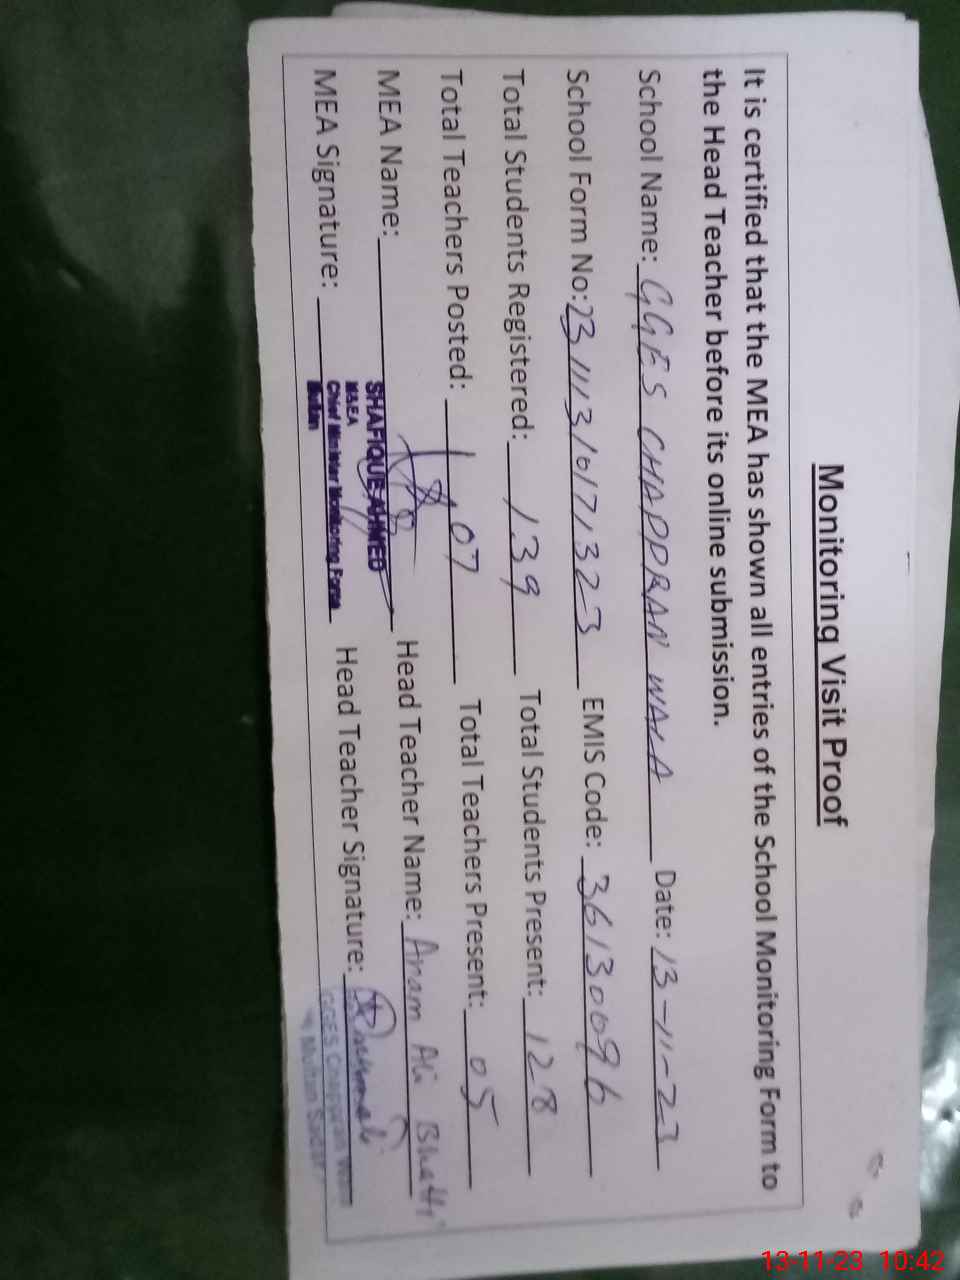 Monitoring Visit Proof
It is certified that the MEA has shown all entries of the School Monitoring Form to
the Head Teacher before its online submission.
School Name: GGES CHAPPRAN WALA Date: 13-11-23
School Form No: 231113101713 23 EMIS Code: 36130096
Total Students Registered: 139 Total Students Present: 128
Total Teachers Posted: 07 Total Teachers Present: 05
MEA Name: SHAFIQUE AHMED Head Teacher Name: Anam Ali Bhatti
MEA Signature: Head Teacher Signature:
M&EA
Chief Minister Monitoring Force
Multan
GGES Chappran Wala
Multan Saddar
13-11-23 10:42